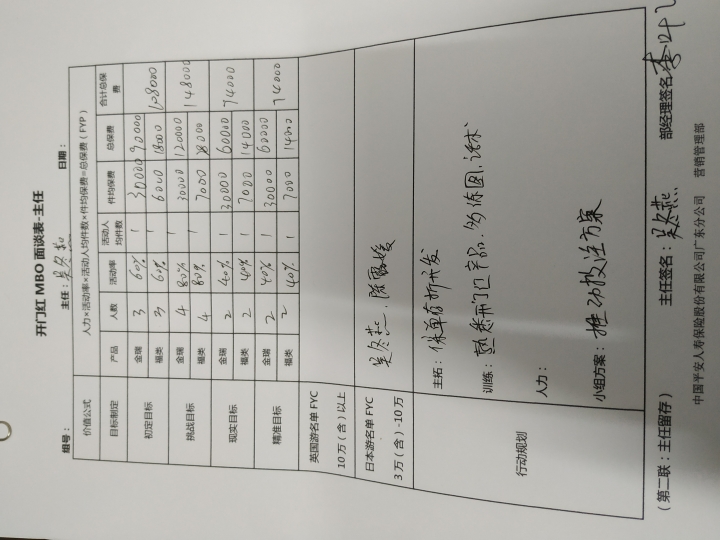 开门红 MBO 面谈表-主任
组号： 主任：吴冬燕 日期：
价值公式 人力×活动率×活动人均件数×件均保费=总保费（FYP）
目标制定 产品 人数 活动率 活动人均件数 件均保费 总保费 合计总保费
初定目标 金瑞 3 60% 1 30000 90000 108000
福类 3 60% 1 6000 18000
挑战目标 金瑞 4 80% 1 30000 120000 148000
福类 4 80% 1 7000 28000
现实目标 金瑞 2 40% 1 30000 60000 74000
福类 2 40% 1 7000 14000
精准目标 金瑞 2 40% 1 30000 60000 74000
福类 2 40% 1 7000 14000
英国游名单 FYC
10 万（含）以上
日本游名单 FYC
3 万（含）-10 万
吴冬燕、陈
行动规划
主拓：保单 开发
训练：熟悉开门红产品，多练 话术
人力：
小组方案：推动 方案
（第二联：主任留存） 主任签名：吴冬燕 部经理签名：李
中国平安人寿保险股份有限公司广东分公司 营销管理部